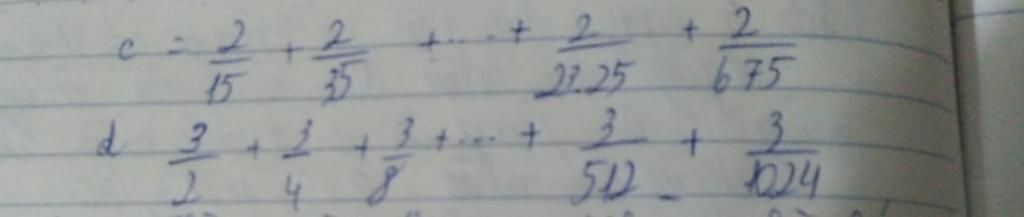 c = 2/15 + 2/35 + ... + 2/23.25 + 2/675
d 3/2 + 3/4 + 3/8 + ... + 3/512 + 3/1024